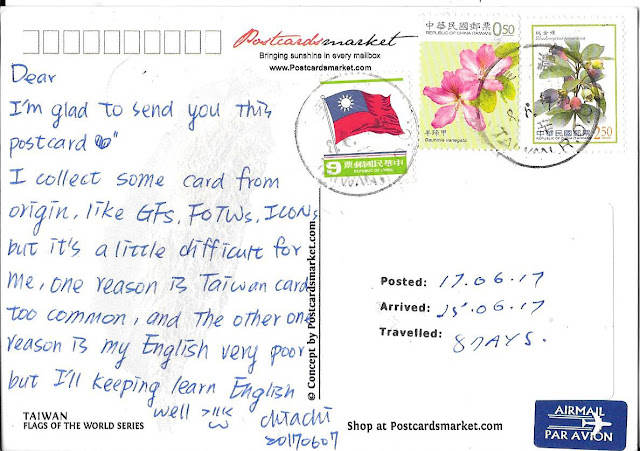 Postcardsmarket
Bringing sunshine in every mailbox
www.Postcardsmarket.com
中華民國郵票 0.50
REPUBLIC OF CHINA (TAIWAN)
羊蹄甲
Bauhinia variegata
桃金孃
中華民國郵票
2.50
9 票郵國民華中
REPUBLIC OF CHINA
TAIWAN
Dear
I'm glad to send you this
postcard
I collect some card from
origin, like GFs, FOTWs, ICONs
but it's a little difficult for
me, one reason is Taiwan card
too common, and the other one
reason is my English very poor
but I'll keeping learn English
well
chitachi
20170607
TAIWAN
FLAGS OF THE WORLD SERIES
© Concept by Postcardsmarket.com
Posted: 17.06.17
Arrived: 25.06.17
Travelled: 8 DAYS.
Shop at Postcardsmarket.com
AIRMAIL
PAR AVION